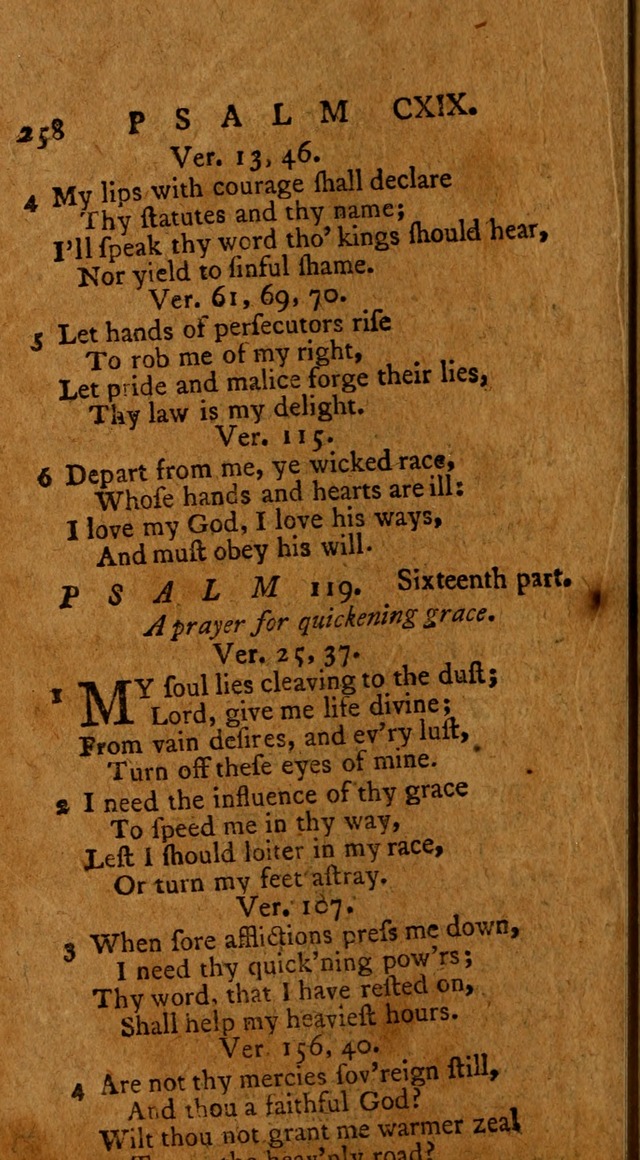 258 PSALM CXIX.
Ver. 13, 46.
4 My lips with courage ſhall declare
Thy ſtatutes and thy name;
I'll ſpeak thy word tho' kings ſhould hear,
Nor yield to ſinful ſhame.
Ver. 61, 69, 70.
5 Let hands of perſecutors riſe
To rob me of my right,
Let pride and malice forge their lies,
Thy law is my delight.
Ver. 115.
6 Depart from me, ye wicked race,
Whoſe hands and hearts are ill:
I love my God, I love his ways,
And muſt obey his will.
PSALM 119. Sixteenth part.
A prayer for quickening grace.
Ver. 25, 37.
1 MY ſoul lies cleaving to the duſt;
Lord, give me life divine;
From vain deſires, and ev'ry luſt,
Turn off theſe eyes of mine.
2 I need the influence of thy grace
To ſpeed me in thy way,
Leſt I ſhould loiter in my race,
Or turn my feet aſtray.
Ver. 107.
3 When ſore afflictions preſs me down,
I need thy quick'ning pow'rs;
Thy word, that I have reſted on,
Shall help my heavieſt hours.
Ver. 156, 40.
4 Are not thy mercies ſov'reign ſtill,
And thou a faithful God?
Wilt thou not grant me warmer zeal
the heav'nly road?